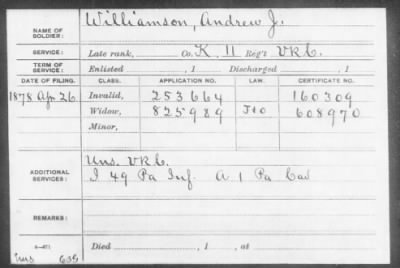 NAME OF SOLDIER: Williamson, Andrew J.
SERVICE: Late rank, Co. K, 11 Reg't V R C.
TERM OF SERVICE: Enlisted , 1 Discharged , 1
DATE OF FILING. CLASS. APPLICATION NO. LAW. CERTIFICATE NO.
1878 Apr 26 Invalid, 253664 160309
Widow, 825989 J+O 608970
Minor,
Uns. V R C.
ADDITIONAL SERVICES: I 49 Pa Inf. A 1 Pa Cav
REMARKS:
Died , 1 , at
635